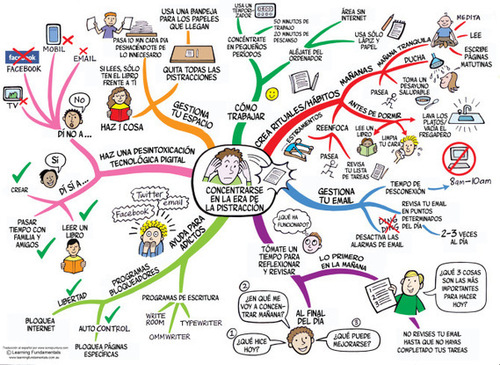 CONCENTRARSE
EN LA ERA DE
LA DISTRACCIÓN
GESTIONA
TU ESPACIO
USA UNA BANDEJA
PARA LOS PAPELES
QUE LLEGAN
PASA 10 MIN CADA
DIA DESHACIÉNDOTE
DE LO
INNECESARIO
QUITA TODAS LAS
DISTRACCIONES
SI LEES, SÓLO
TEN EL LIBRO
FRENTE A TÍ
HAZ 1 COSA
CÓMO
TRABAJAR
USA UN TEMPOR-
IZADOR
50 MINUTOS DE
TRABAJO
10 MINUTOS DE
DESCANSO
CONCÉNTRATE
EN PEQUEÑOS
PERÍODOS
ÁREA SIN
INTERNET
USA SÓLO
LÁPIZ Y
PAPEL
ALÉJATE DEL
ORDENADOR
CREA RITUALES/HÁBITOS
MAÑANAS
MAÑANA TRANQUILA
MEDITA
LEE
ESCRIBE PÁGINAS
MATUTINAS
DUCHA
PASEA
TOMA UN
DESAYUNO
SALUDABLE
ANTES DE DORMIR
LAVA LOS
PLATOS/
VACÍA EL
FREGADERO
LIMPIA
TU CARA
LEE UN
LIBRO
ESTIRAMIENTOS
REENFOCA
PASEA
REVISA
TU LISTA
DE TAREAS
GESTIONA
TU EMAIL
TIEMPO DE
DESCONEXIÓN
8am-10am
REVISA TU EMAIL
EN PUNTOS
DETERMINADOS
DEL DÍA
2-3 VECES
AL DÍA
DING
DING
DESACTIVA LAS
ALARMAS DE EMAIL
TÓMATE UN
TIEMPO PARA
REFLEXIONAR
Y REVISAR
¿QUÉ HA
FUNCIONADO?
LO PRIMERO
EN LA MAÑANA
¿QUÉ 3 COSAS
SON LAS MÁS
IMPORTANTES
PARA HACER
HOY?
NO REVISES TU EMAIL
HASTA QUE NO HAYAS
COMPLETADO TUS TAREAS
AL FINAL
DEL DÍA
① ¿QUÉ HICE
HOY?
② ¿EN QUÉ ME
VOY A CONCEN-
TRAR MAÑANA?
③ ¿QUÉ PUEDE
MEJORARSE?
AYUDA PARA
ADICTOS
Twitter
email
Facebook
PROGRAMAS
BLOQUEADORES
LIBERTAD
BLOQUEA
INTERNET
AUTO CONTROL
BLOQUEA PÁGINAS
ESPECÍFICAS
PROGRAMAS DE ESCRITURA
WRITE
ROOM
TYPEWRITER
OMMWRITER
HAZ UNA DESINTOXICACIÓN
TECNOLÓGICA DIGITAL
DÍ NO A...
No
facebook
FACEBOOK
MOBIL
EMAIL
TV
DÍ SÍ A...
Sí
CREAR
PASAR
TIEMPO CON
FAMILIA Y
AMIGOS
LEER UN
LIBRO
© Learning Fundamentals
www.learningfundamentals.com.au